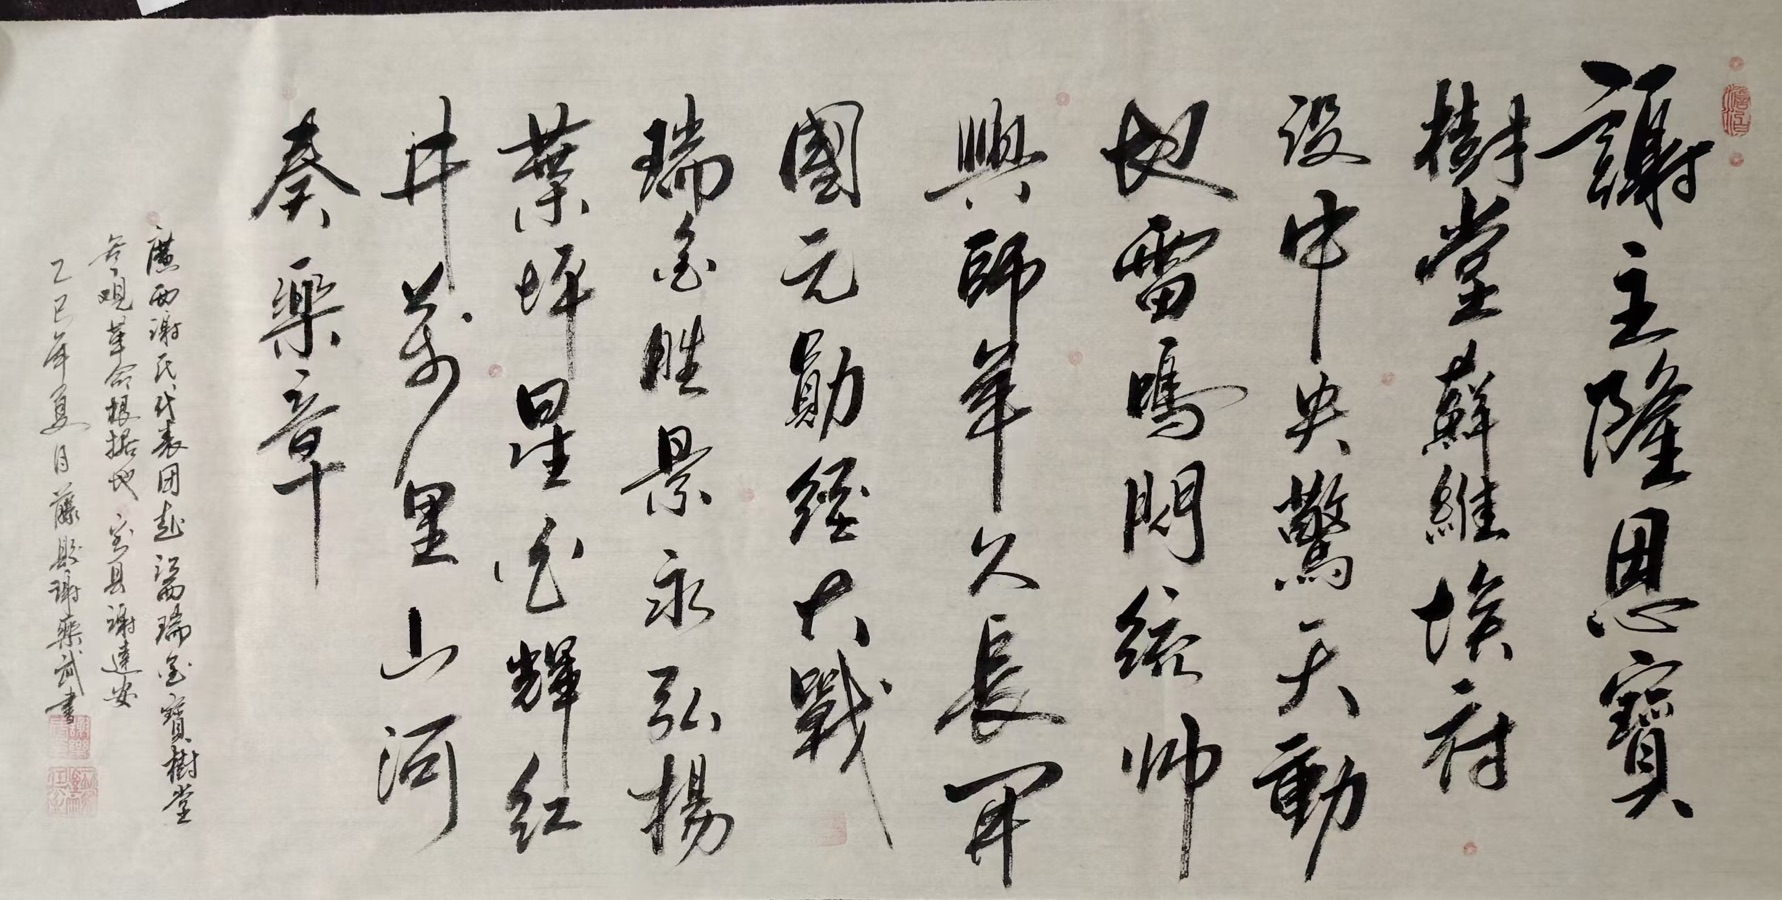 謝主隆恩寶
樹堂蘇維埃府
设中央驚天動
地雷鳴閃统帅
興師年久長军
國元勛經大戰
瑞金胜景永弘揚
葉坪星火輝红
井万里山河
奏樂章
廣西谢氏代表团赴江西瑞金寶樹堂
参观革命根据地 容县謝達安
乙巳年夏月藤縣谢樂武书